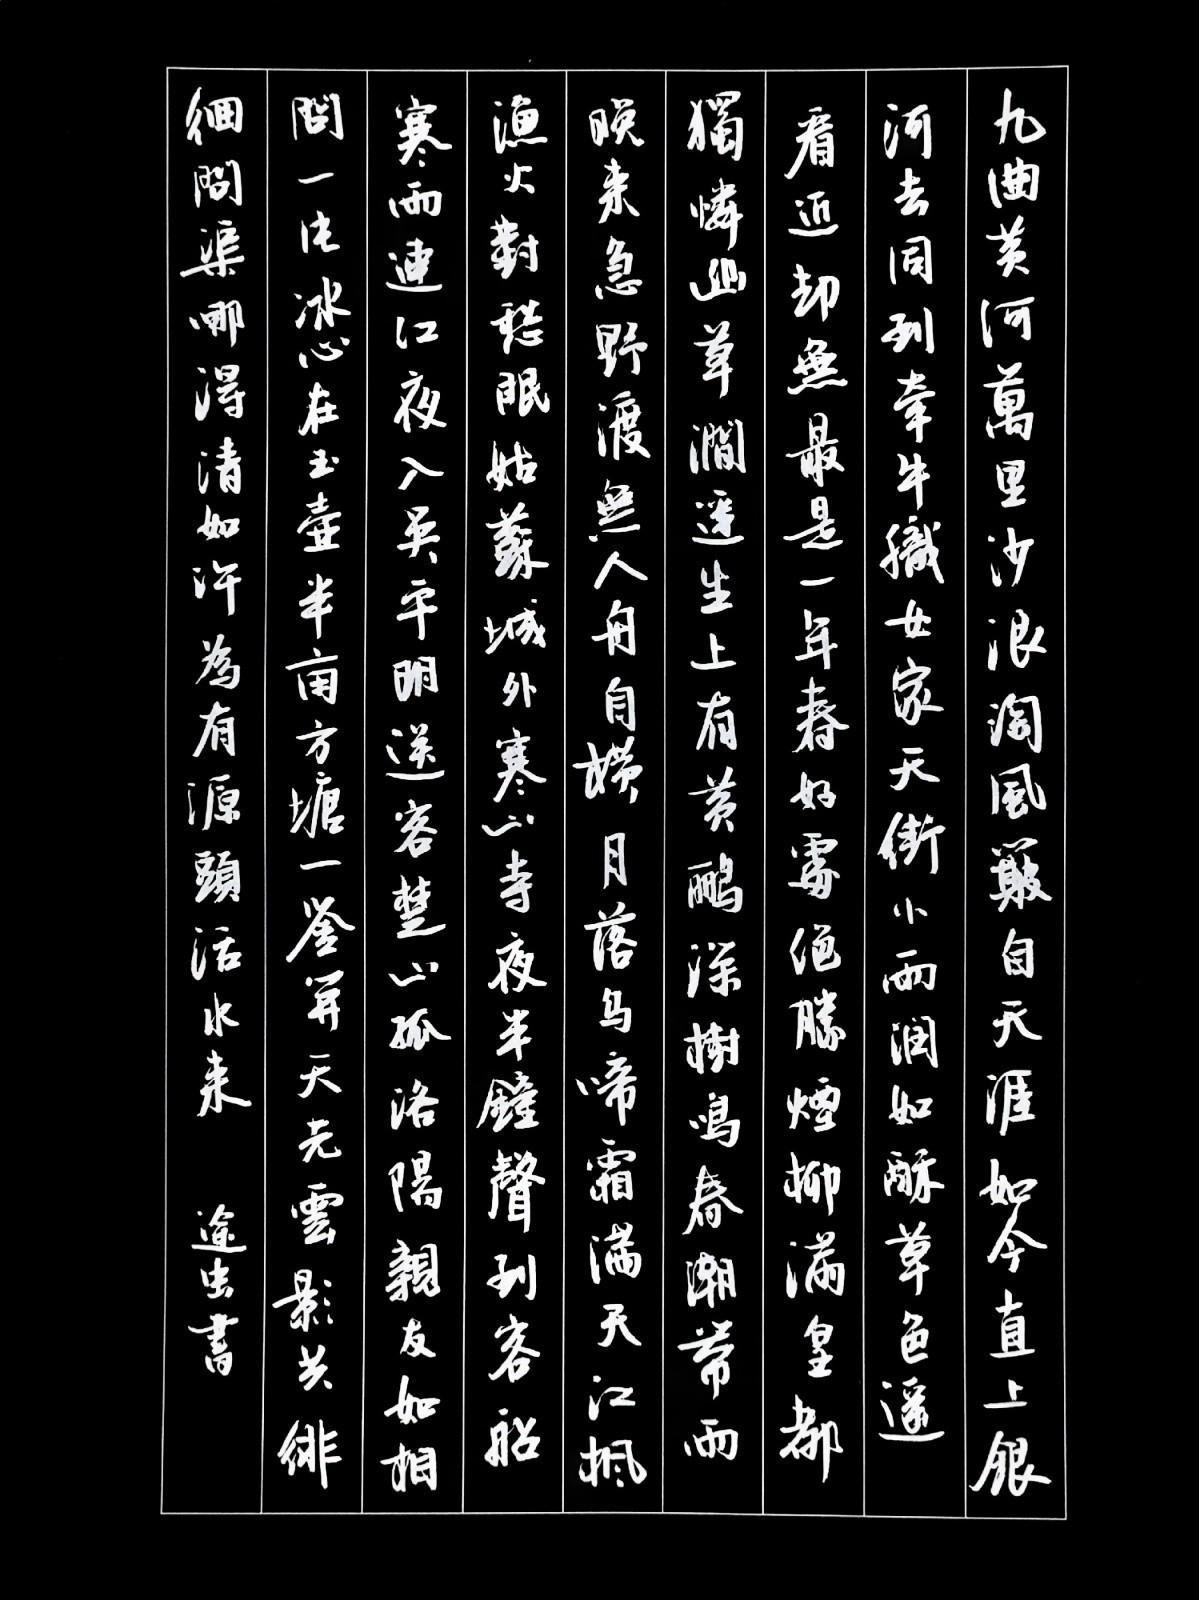 九曲黃河萬里沙浪淘風簸自天涯如今直上銀
河去同到牽牛織女家天街小雨潤如酥草色遥
看近却無最是一年春好處絕勝煙柳滿皇都
獨憐幽草澗邊生上有黃鸝深樹鳴春潮帶雨
晚来急野渡無人舟自横月落烏啼霜滿天江楓
漁火對愁眠姑蘇城外寒山寺夜半鐘聲到客船
寒雨連江夜入吴平明送客楚山孤洛陽親友如相
問一片冰心在玉壺半亩方塘一鉴開天光雲影共徘
徊問渠哪得清如许為有源頭活水来 途虫書